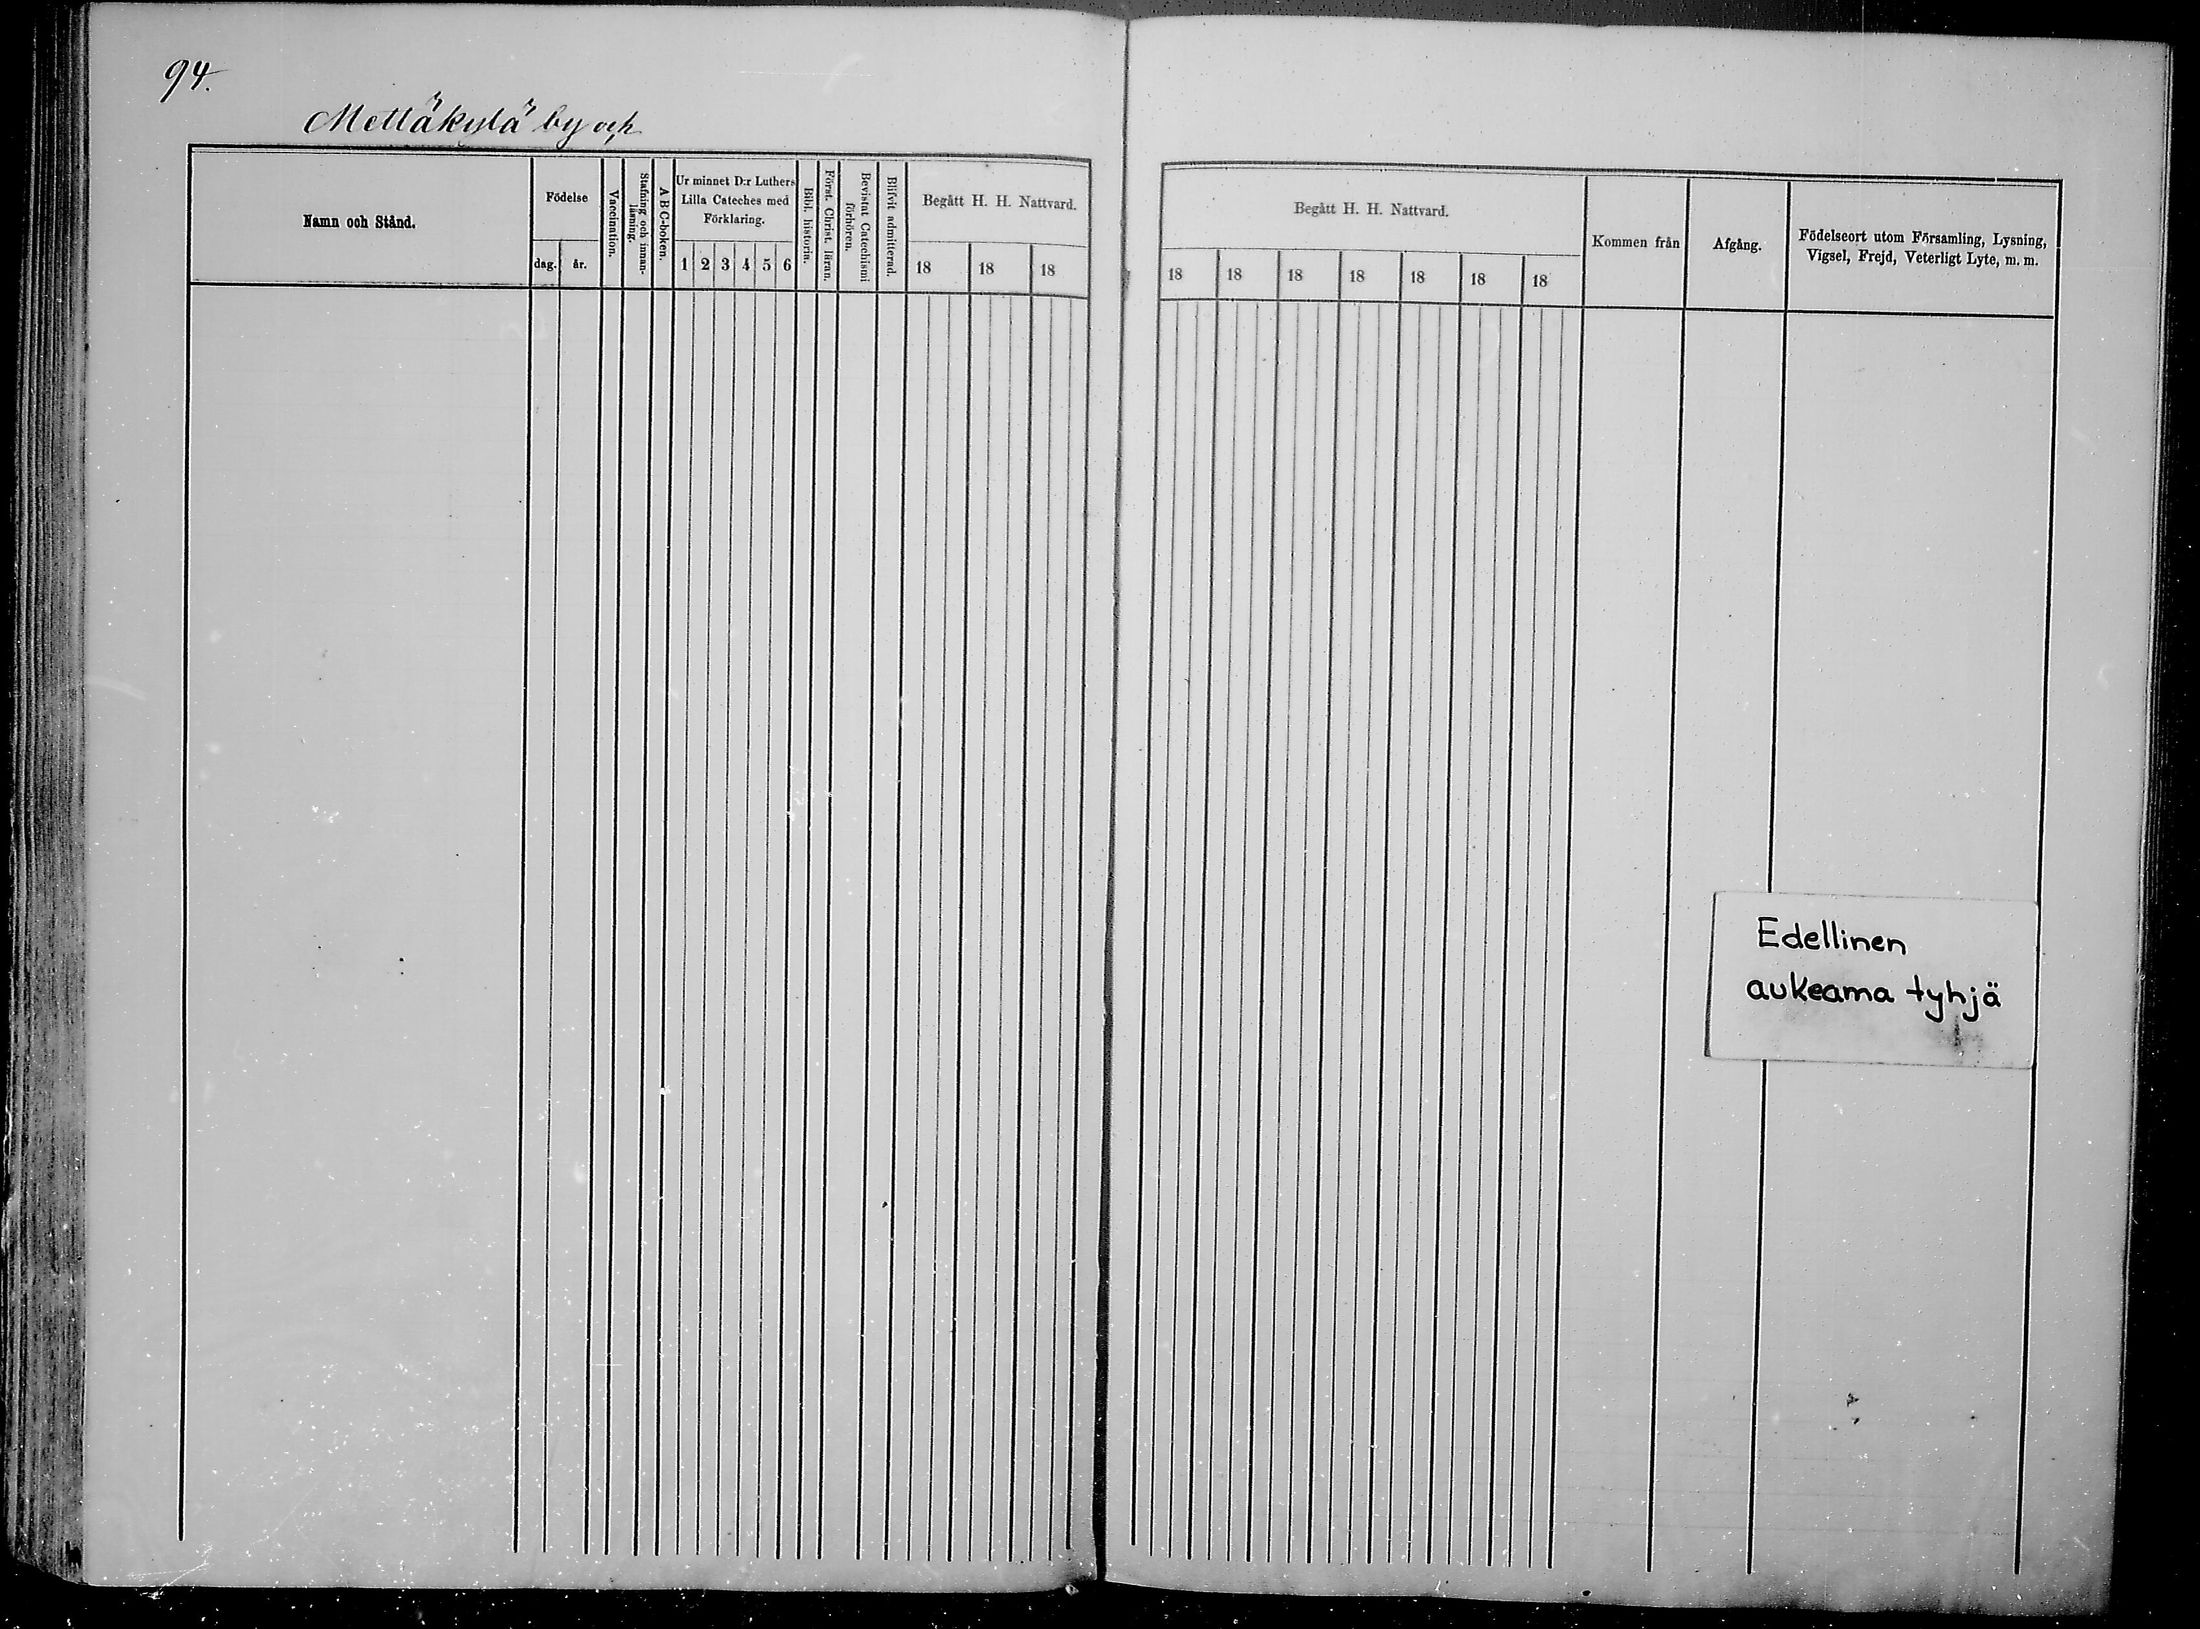 94.
Mettäkylä by och
Namn och Stånd.
Födelse
dag.
år.
Vaccination.
Stafning och innan-
läsning.
A B C-boken.
Ur minnet D:r Luthers
Lilla Cateches med
Förklaring.
1 2 3 4 5 6
Bibl. historia.
Först. Christ. läran.
Bevistat Catechismi
förhören.
Blifvit admitterad.
Begått H. H. Nattvard.
18 18 18
Begått H. H. Nattvard.
18 18 18 18 18 18 18
Kommen från
Afgång.
Födelseort utom Församling, Lysning,
Vigsel, Frejd, Veterligt Lyte, m. m.
Edellinen
aukeama tyhjä